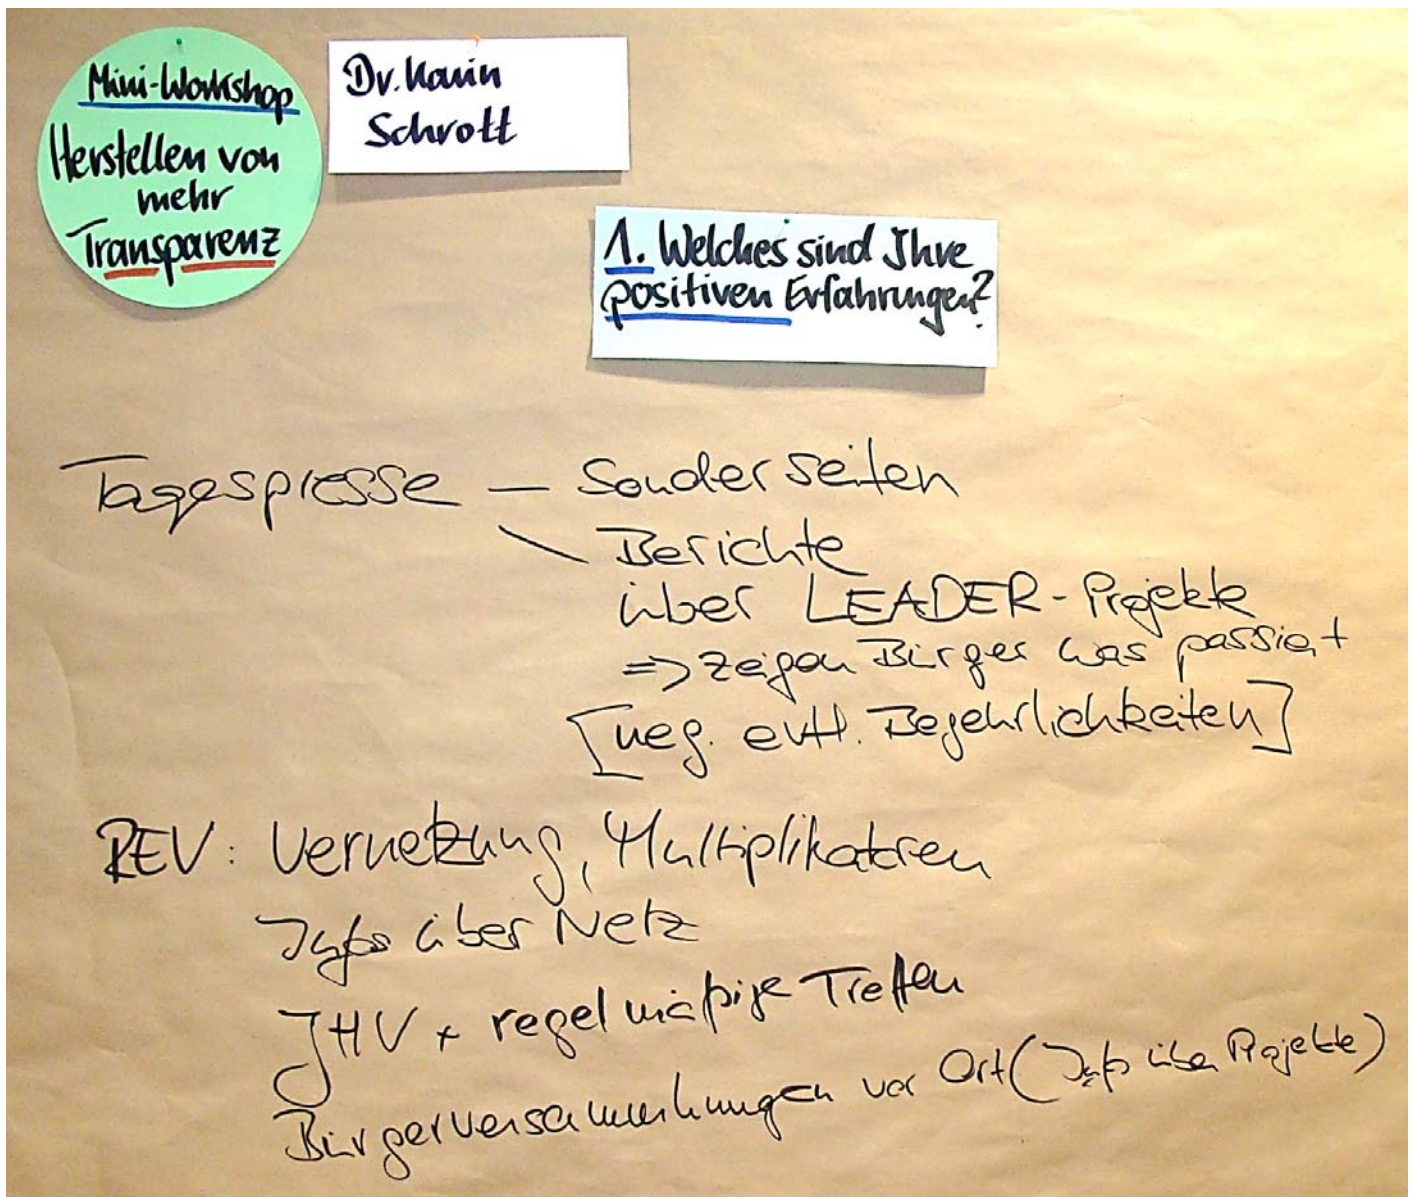 Mini-Workshop
Herstellen von
mehr
Transparenz
Dr. Karin
Schrott
1. Welches sind Ihre
positiven Erfahrungen?
Tagespresse — Sonderseiten
\ Berichte
über LEADER-Projekte
=> zeigen Bürger was passiert
[neg. evtl. Begehrlichkeiten]
REV: Vernetzung, Multiplikatoren
Infos über Netz
JHV + regelmäßige Treffen
Bürgerversammlungen vor Ort (Info über Projekte)